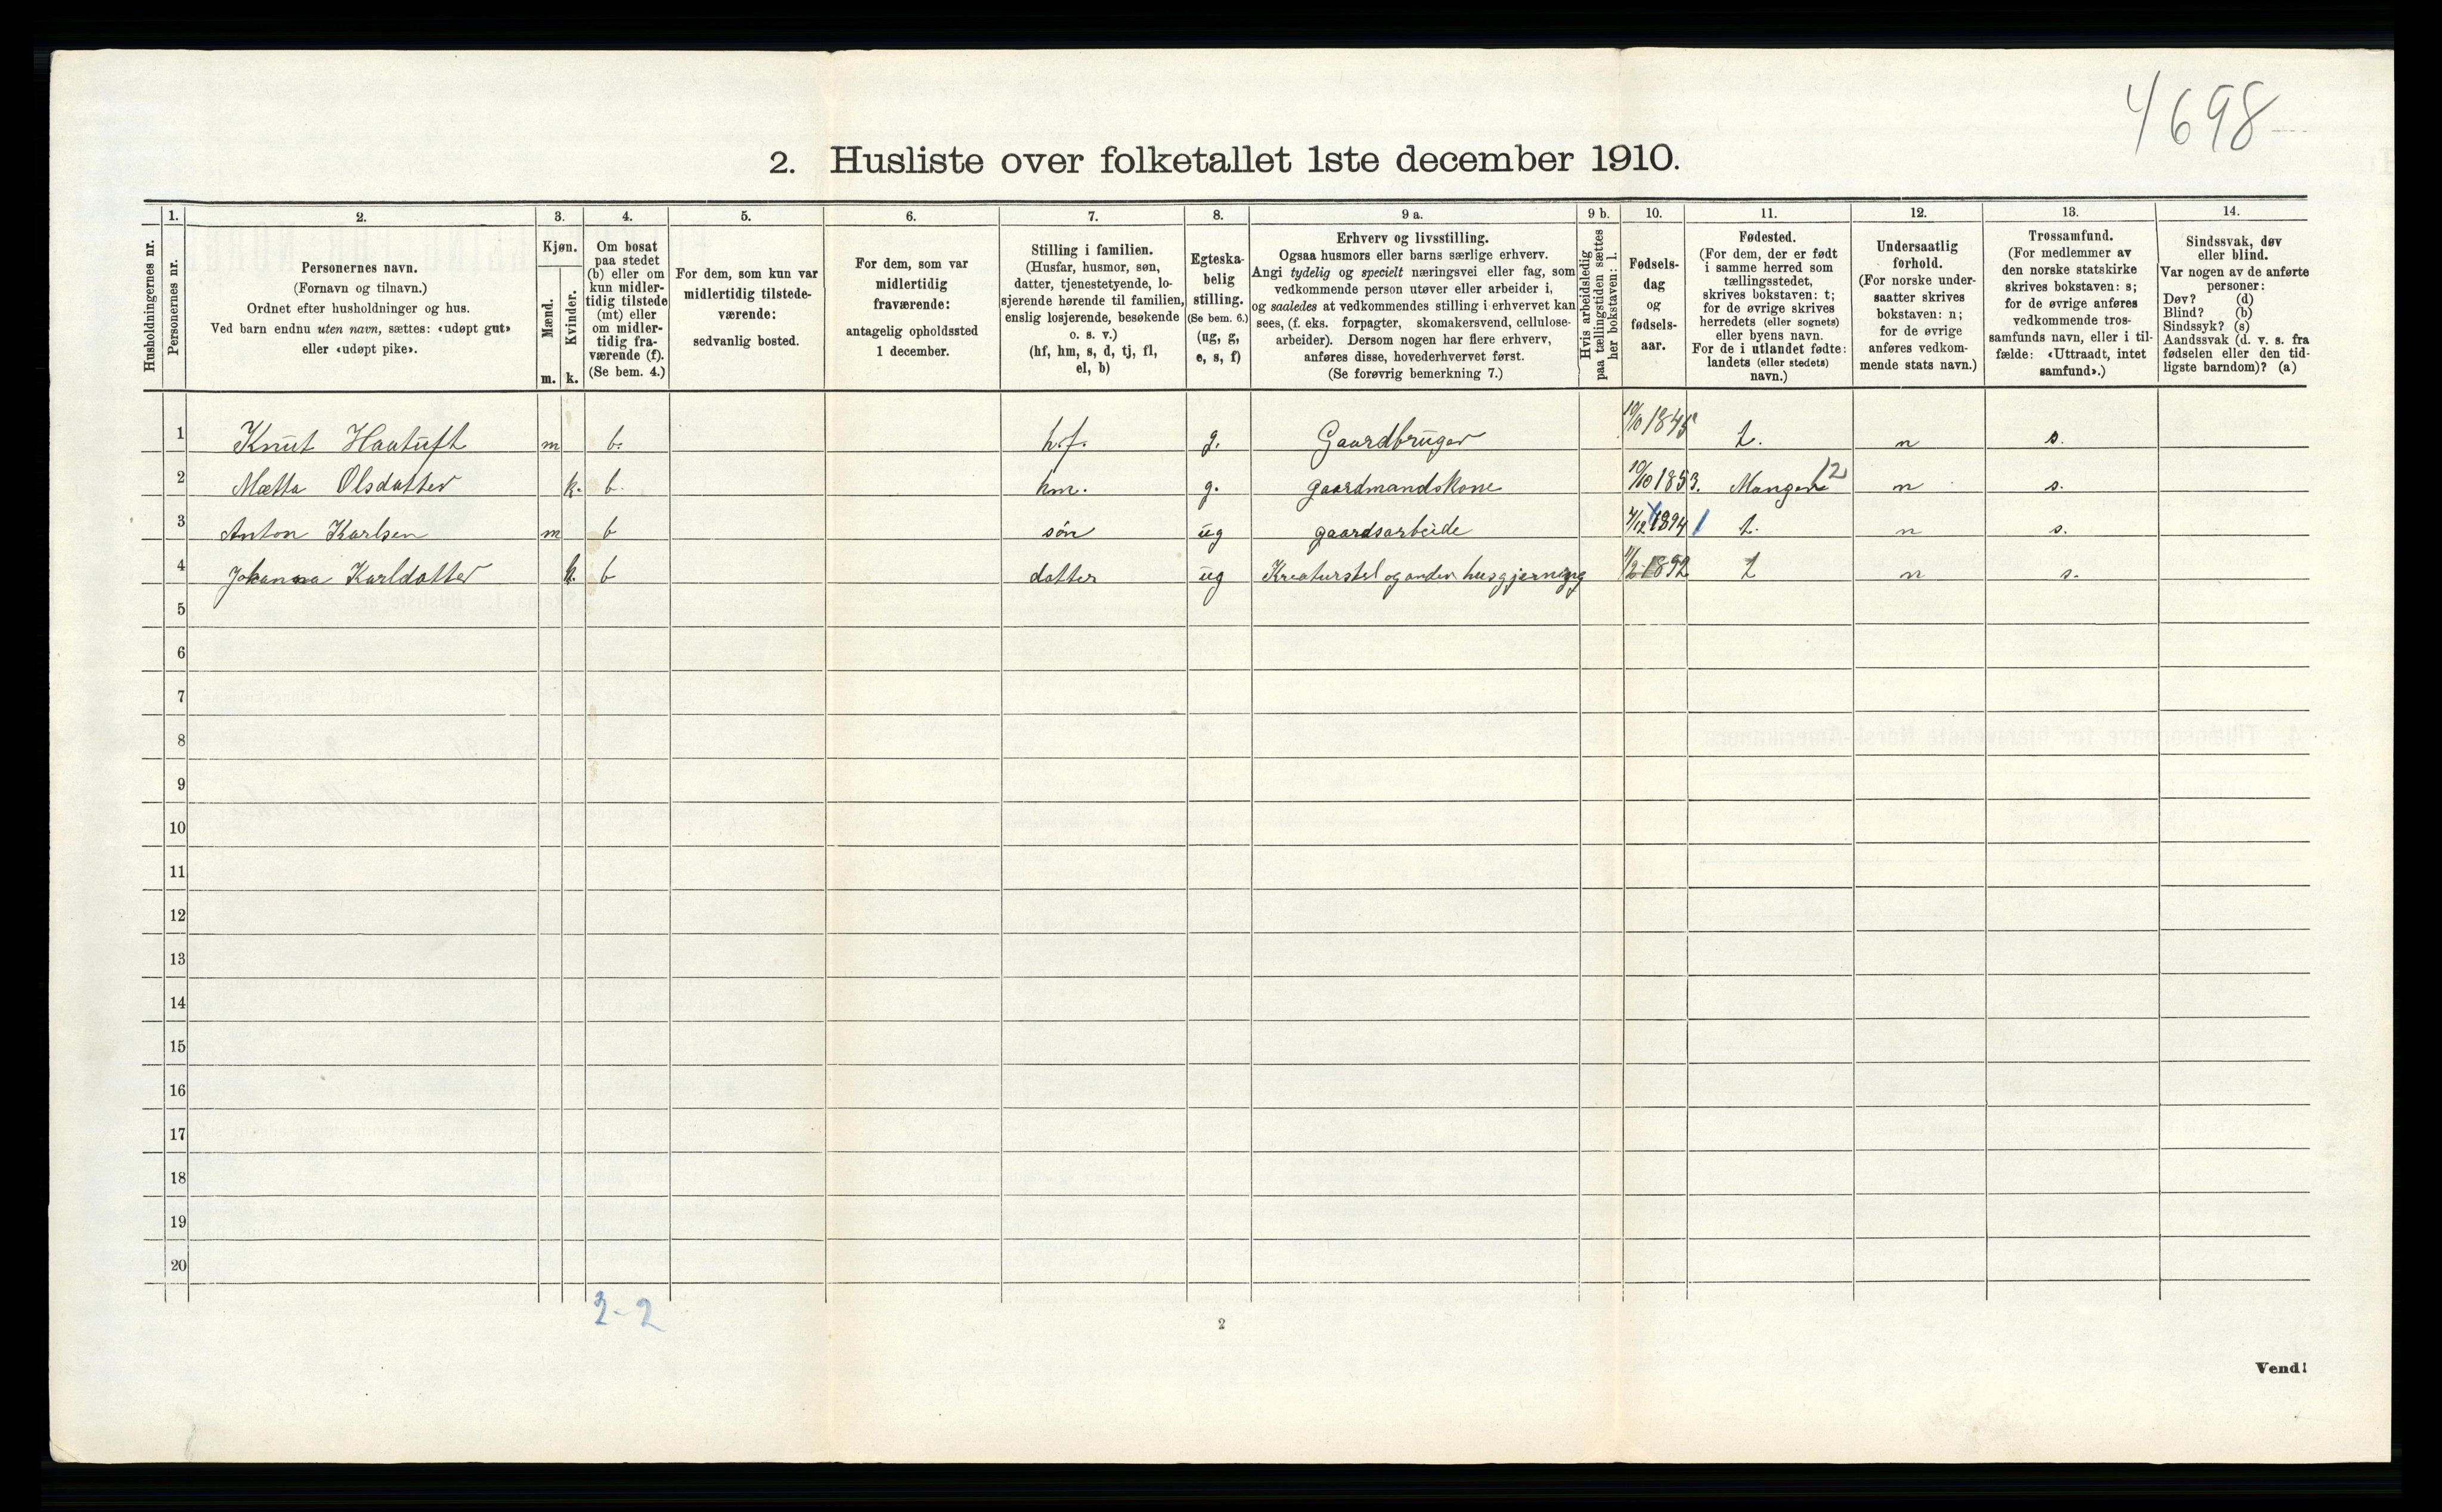 4698
2. Husliste over folketallet 1ste december 1910.
1. 2. 3. 4. 5. 6. 7. 8. 9 a. 9 b. 10. 11. 12. 13. 14.
Husholdningernes nr.
Personernes nr.
Personernes navn.
(Fornavn og tilnavn.)
Ordnet efter husholdninger og hus.
Ved barn endnu uten navn, sættes: «udøpt gut»
eller «udøpt pike».
Kjøn.
Mænd.
Kvinder.
m. k.
Om bosat
paa stedet
(b) eller om
kun midler-
tidig tilstede
(mt) eller
om midler-
tidig fra-
værende (f).
(Se bem. 4.)
For dem, som kun var
midlertidig tilstede-
værende:
sedvanlig bosted.
For dem, som var
midlertidig
fraværende:
antagelig opholdssted
1 december.
Stilling i familien.
(Husfar, husmor, søn,
datter, tjenestetyende, lo-
sjerende hørende til familien,
enslig losjerende, besøkende
o. s. v.)
(hf, hm, s, d, tj, fl,
el, b)
Egteska-
belig
stilling.
(Se bem. 6.)
(ug, g,
e, s, f)
Erhverv og livsstilling.
Ogsaa husmors eller barns særlige erhverv.
Angi tydelig og specielt næringsvei eller fag, som
vedkommende person utøver eller arbeider i,
og saaledes at vedkommendes stilling i erhvervet kan
sees, (f. eks. forpagter, skomakersvend, cellulose-
arbeider). Dersom nogen har flere erhverv,
anføres disse, hovederhvervet først.
(Se forøvrig bemerkning 7.)
Hvis arbeidsledig
paa tællingstiden sættes
her bokstaven: l.
Fødsels-
dag
og
fødsels-
aar.
Fødested.
(For dem, der er født
i samme herred som
tællingsstedet,
skrives bokstaven: t;
for de øvrige skrives
herredets (eller sognets)
eller byens navn.
For de i utlandet fødte:
landets (eller stedets)
navn.)
Undersaatlig
forhold.
(For norske under-
saatter skrives
bokstaven: n;
for de øvrige
anføres vedkom-
mende stats navn.)
Trossamfund.
(For medlemmer av
den norske statskirke
skrives bokstaven: s;
for de øvrige anføres
vedkommende tros-
samfunds navn, eller i til-
fælde: «Uttraadt, intet
samfund».)
Sindssvak, døv
eller blind.
Var nogen av de anførte
personer:
Døv? (d)
Blind? (b)
Sindssyk? (s)
Aandssvak (d. v. s. fra
fødselen eller den tid-
ligste barndom)? (a)
1 Knut Haatuft m b. h.f. g. Gaardbruger 10/10 1845 t. n s.
2 Mætta Olsdatter k. b. hm. g. gaardmandskone 10/10 1853. Manger 12 n s.
3 Anton Karlsen m b søn ug gaardsarbeide 1894 1 t. n s.
4 Johanna Karldatter k. b datter ug Kreaturstel og anden husgjerning 1892 t n s.
5
6
7
8
9
10
11
12
13
14
15
16
17
18
19
20
2-2
2
Vend!